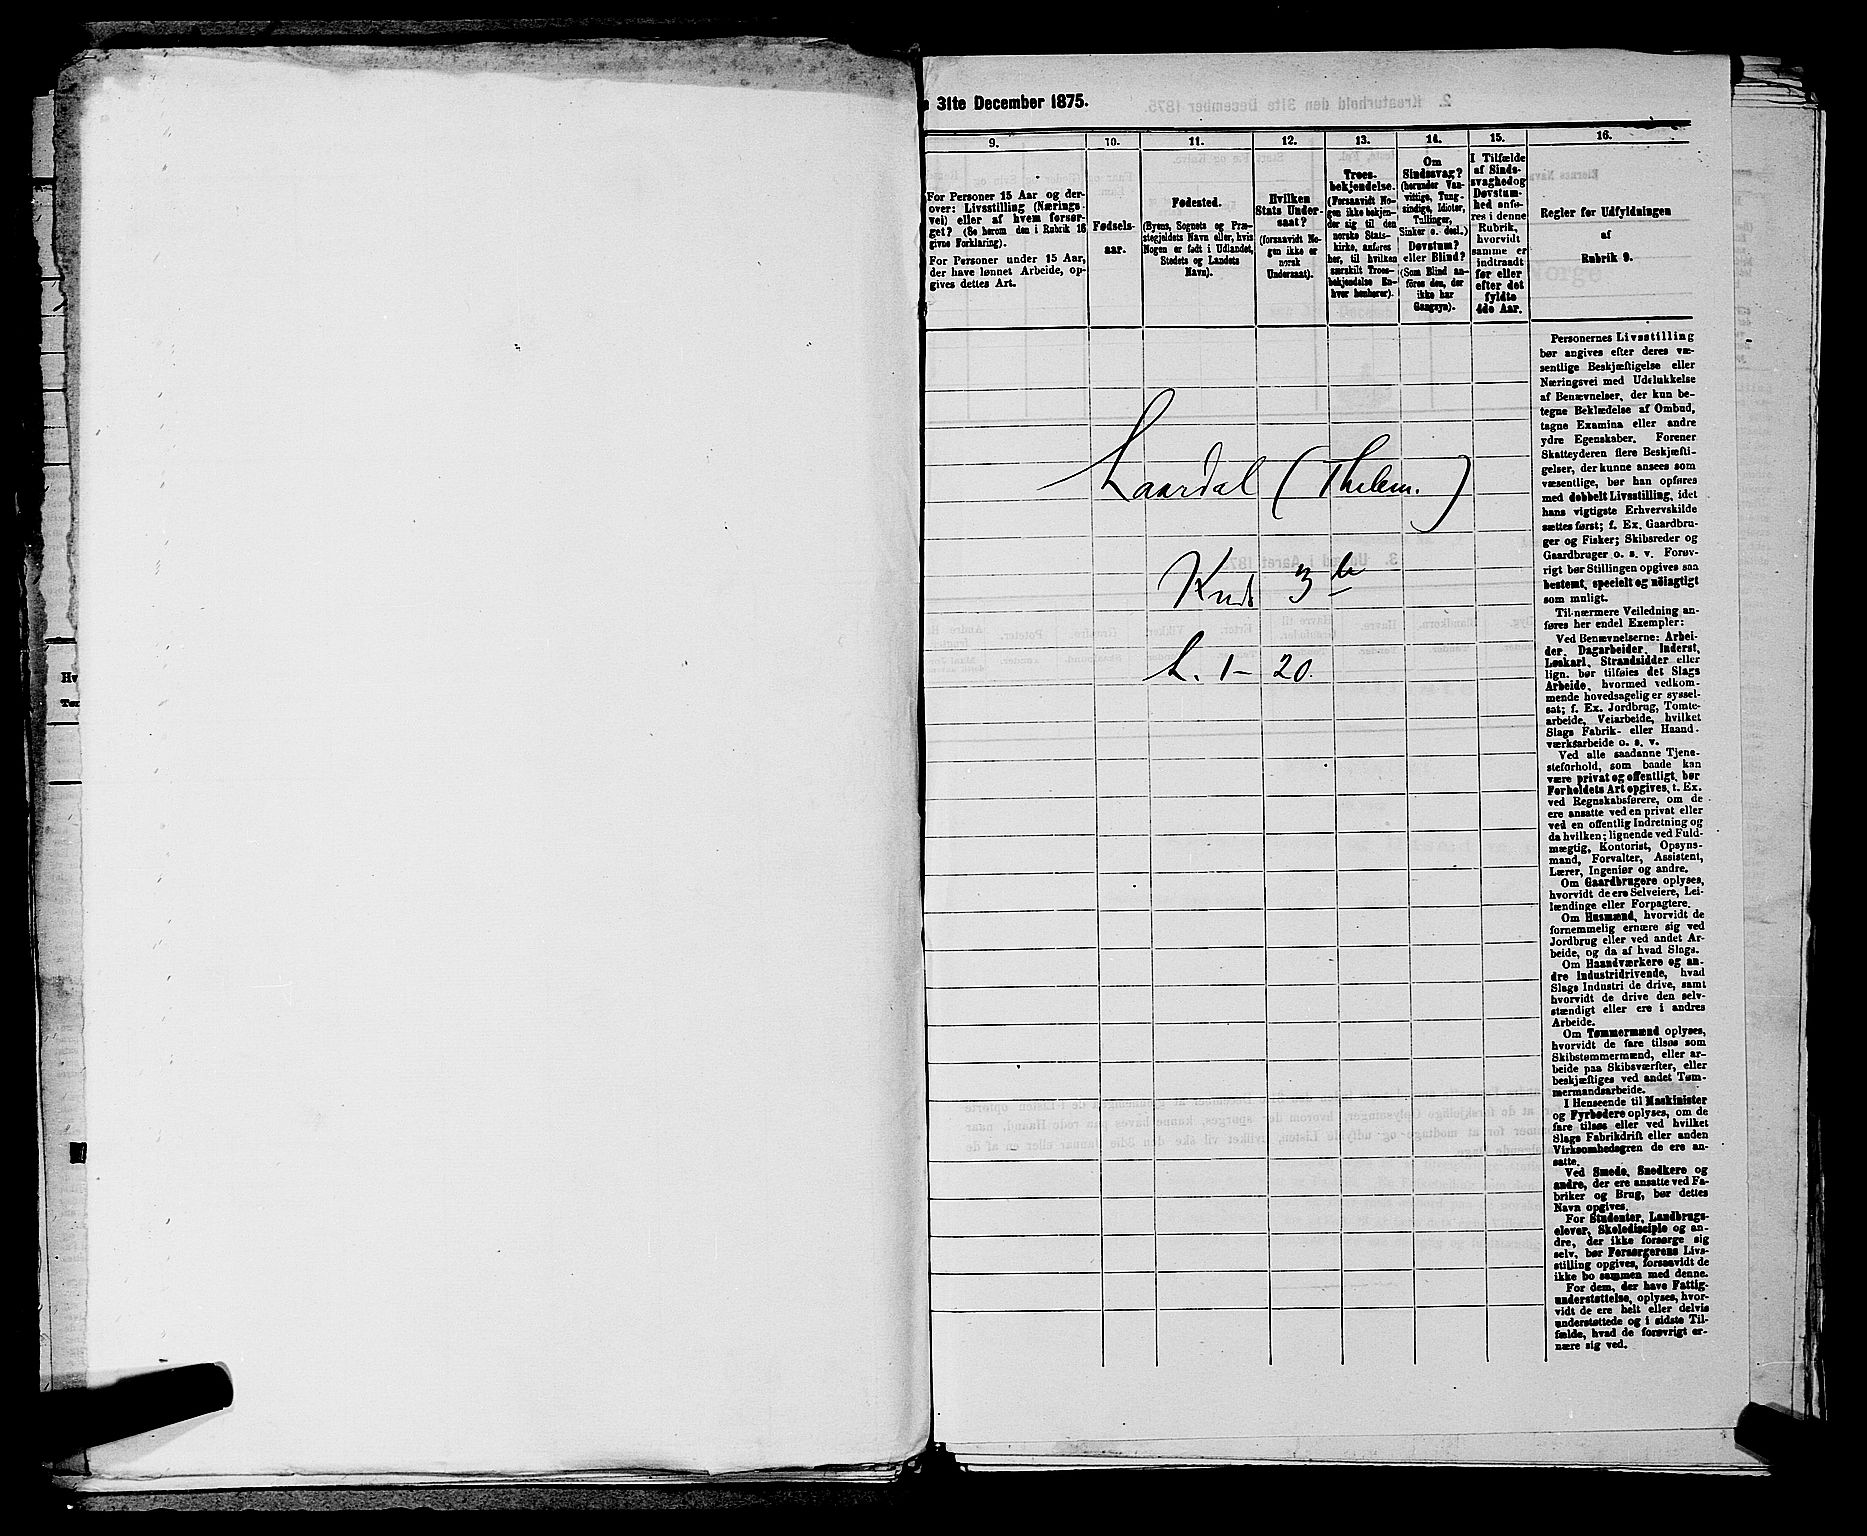 31te December 1875.
9.
For Personer 15 Aar og der-
over: Livsstilling (Nærings-
vei) eller af hvem forsør-
get? (Se herom den i Rubrik 16
givne Forklaring).
For Personer under 15 Aar,
der have lønnet Arbeide, op-
gives dettes Art.
10.
Fødsels-
aar.
11.
Fødested.
(Byens, Sognets og Præ-
stegjeldets Navn eller, hvis
Nogen er født i Udlandet,
Stedets og Landets
Navn).
12.
Hvilken
Stats Under-
saat?
(forsaavidt No-
gen ikke er
norsk
Undersaat).
13.
Troes-
bekjendelse.
(Forsaavidt No-
gen ikke bekjen-
der sig til den
norske Stats-
kirke, anføres
her, til hvilken
særskilt Troes-
bekjendelse En-
hver henhører).
14.
Om
Sindssvag?
(herunder Van-
vittige, Tung-
sindige, Idioter,
Tullinger,
Sinker o. desl.)
Døvstum?
eller Blind?
(Som Blind an-
føres den, der
ikke har
Gangsyn).
15.
I Tilfælde
af Sinds-
svaghed og
Døvstum-
hed anfø-
res i denne
Rubrik,
hvorvidt
samme er
indtraadt
før eller
efter det
fyldte
4de Aar.
16.
Regler før Udfyldningen
af
Rubrik 9.
Laardal (Thelem.)
Kreds 3 b
L. 1 – 20.
Personernes Livsstilling
bør angives efter deres væ-
sentlige Beskjæftigelse eller
Næringsvei med Udelukkelse
af Benævnelser, der kun be-
tegne Beklædelse af Ombud,
tagne Examina eller andre
ydre Egenskaber. Forener
Skatteyderen flere Beskjæfti-
gelser, der kunne ansees som
væsentlige, bør han opføres
med dobbelt Livsstilling, idet
hans vigtigste Erhvervskilde
sættes først; f. Ex. Gaardbru-
ger og Fisker; Skibsreder og
Gaardbruger o. s. v. Forøv-
rigt bør Stillingen opgives saa
bestemt, specielt og nöiagtigt
som muligt.
Til nærmere Veiledning an-
føres her endel Exempler:
Ved Benævnelserne: Arbei-
der, Dagarbeider, Inderst,
Løskarl, Strandsidder eller
lign. bør tilføies det Slags
Arbeide, hvormed vedkom-
mende hovedsagelig er syssel-
sat; f. Ex. Jordbrug, Tomte-
arbeide, Veiarbeide, hvilket
Slags Fabrik- eller Haand-
værksarbeide o. s. v.
Ved alle saadanne Tjene-
steforhold, som baade kan
være privat og offentligt, bør
Forholdets Art opgives, t. Ex.
ved Regnskabsførere, om de
ere ansatte ved en privat eller
ved en offentlig Indretning og
da hvilken; lignende ved Fuld-
mægtig, Kontorist, Opsyns-
mand, Forvalter, Assistent,
Lærer, Ingeniør og andre.
Om Gaardbrugere oplyses,
hvorvidt de ere Selveiere, Lei-
lændinge eller Forpagtere.
Om Husmænd, hvorvidt de
fornemmelig ernære sig ved
Jordbrug eller ved andet Ar-
beide, og da af hvad Slags.
Om Haandværkere og an-
dre Industridrivende, hvad
Slags Industri de drive, samt
hvorvidt de drive den selv-
stændigt eller ere i andres
Arbeide.
Om Tømmermænd oplyses,
hvorvidt de fare tilsøs som
Skibstømmermænd, eller ar-
beide paa Skibsværfter, eller
beskjæftiges ved andet Tøm-
mermandsarbeide.
I Henseende til Maskinister
og Fyrbødere oplyses, om de
fare tilsøs eller ved hvilket
Slags Fabrikdrift eller anden
Virksomhedsgren de ere an-
satte.
Ved Smede, Snedkere og
andre, der ere ansatte ved Fa-
briker og Brug, bør dettes
Navn opgives.
For Studenter, Landbrugs-
elever, Skoledisciple og an-
dre, der ikke forsørge sig
selv, bør Forsørgerens Livs-
stilling opgives, forsaavidt de
ikke bo sammen med denne.
For dem, der have Fattig-
understøttelse, oplyses, hvor-
vidt de ere helt eller delvis
understøttede og i sidste Til-
fælde, hvad de forøvrigt er-
nære sig ved.